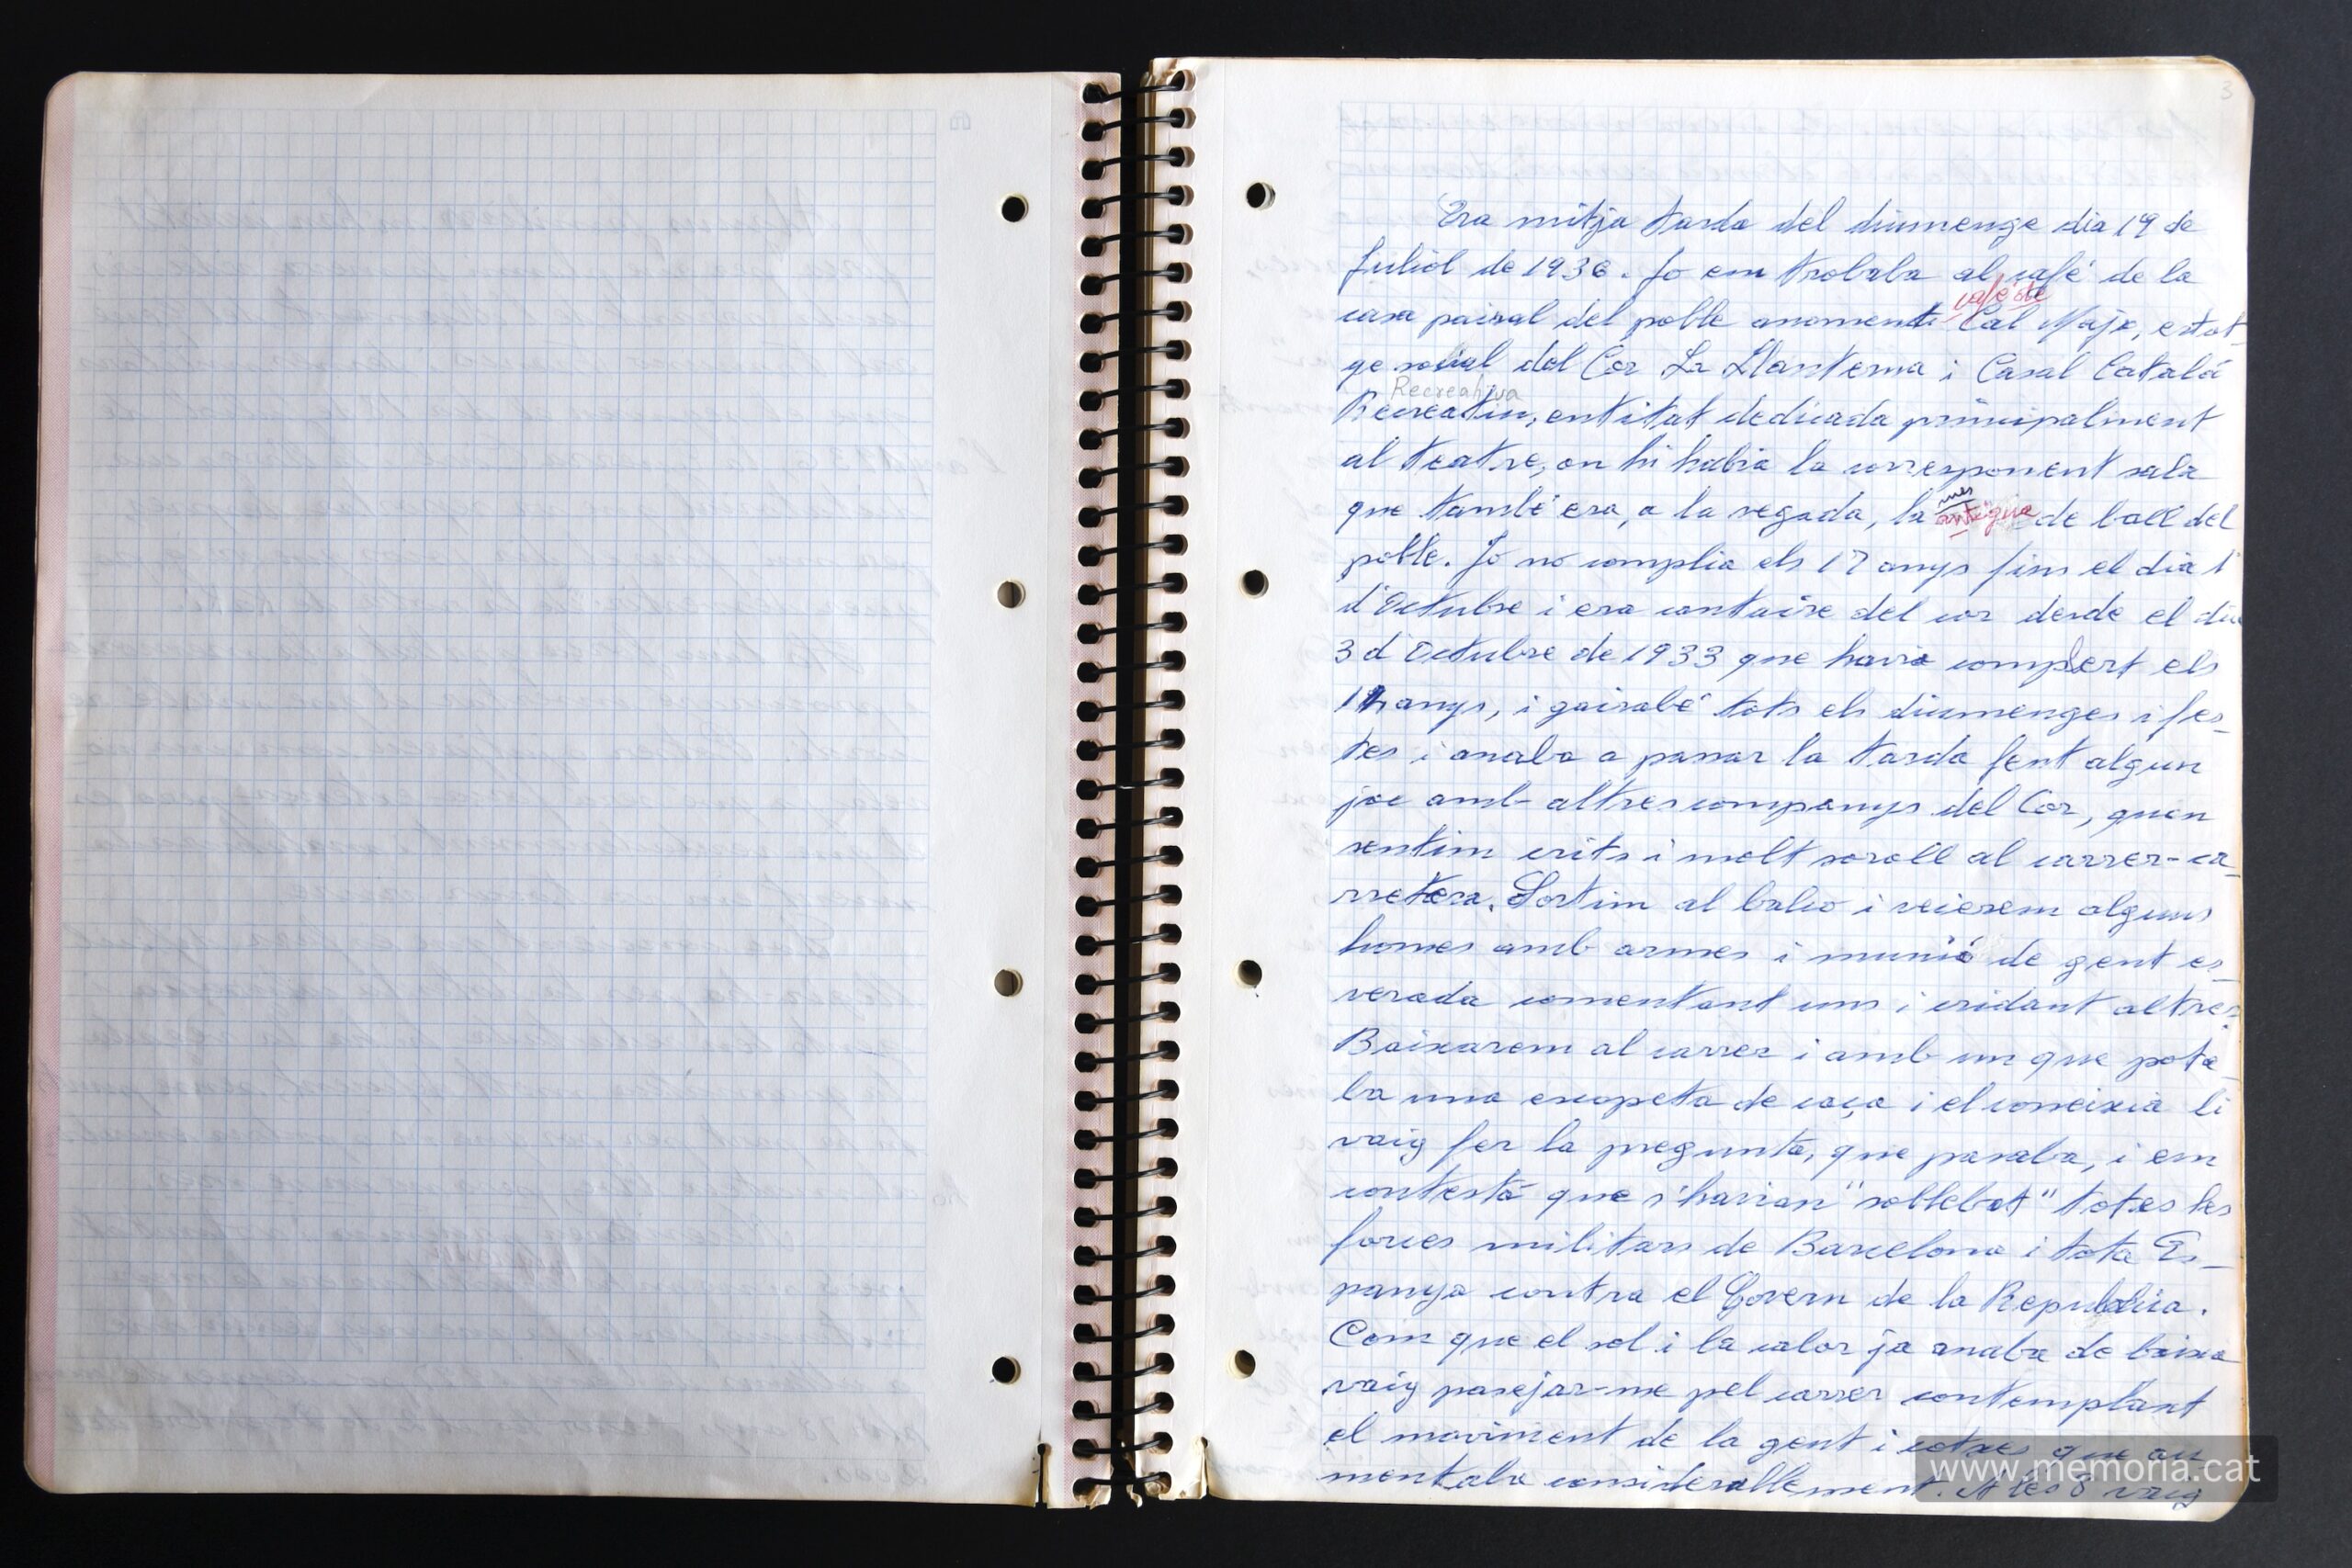 3
Era mitja tarda del diumenge dia 19 de
Juliol de 1936. Jo em trobaba al café de la
café de
casa pairal del poble anomenat Cal Majo, estat-
ge social del Cor La Llanterna i Casal Catalá
Recreativa
Recreatiu, entitat dedicada principalment
al teatre, on hi habia la corresponent sala
mes
que també era, a la vegada, la antigua de ball del
poble. Jo no complia els 17 anys fins el dia 1
d'Octubre i era cantaire del cor desde el dia
3 d'Octubre de 1933 que havia complert els
14 anys, i gairabé tots els diumenges i fes-
tes i anaba a passar la tarda fent algun
joc amb altres companys del Cor, quan
sentim crits i molt soroll al carrer-ca-
rretera. Sortim al balco i veierem alguns
homes amb armes i munió de gent es-
verada comentant uns i cridant altres.
Baixarem al carrer i amb un que pota-
ba una escopeta de caça i el coneixia li
vaig fer la pregunta, que pasaba, i em
contestá que s'havian "sobllebat" totes les
forces militars de Barcelona i tota Es-
panya contra el Govern de la Republica.
Com que el sol i la calor ja anaba de baixa
vaig pasejar-me pel carrer contemplant
el moviment de la gent i cotxes que au-
mentaba considerablement. A les 8 vaig
www.memoria.cat